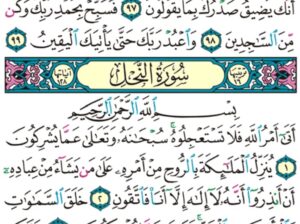 أنك يضيق صدرك بما يقولون ٩٧ فسبح بحمد ربك وكن
من ٱلسـٰجدين ٩٨ وٱعبد ربك حتىٰ يأتيك ٱليقين ٩٩
سورة النحل
بسم ٱللَّه ٱلرحمـٰن ٱلرحيم
أتىٰٓ أمر ٱللَّه فلا تستعجلوه سبحـٰنهۥ وتعـٰلىٰ عما يشركون
١ ينزل ٱلملـٰٓئكة بٱلروح من أمرهۦ علىٰ من يشآء من عبادهۦٓ
أن أنذروٓا۟ أنهۥ لآ إلـٰه إلآ أنا۠ فٱتقون ٢ خلق ٱلسمـٰوٰت